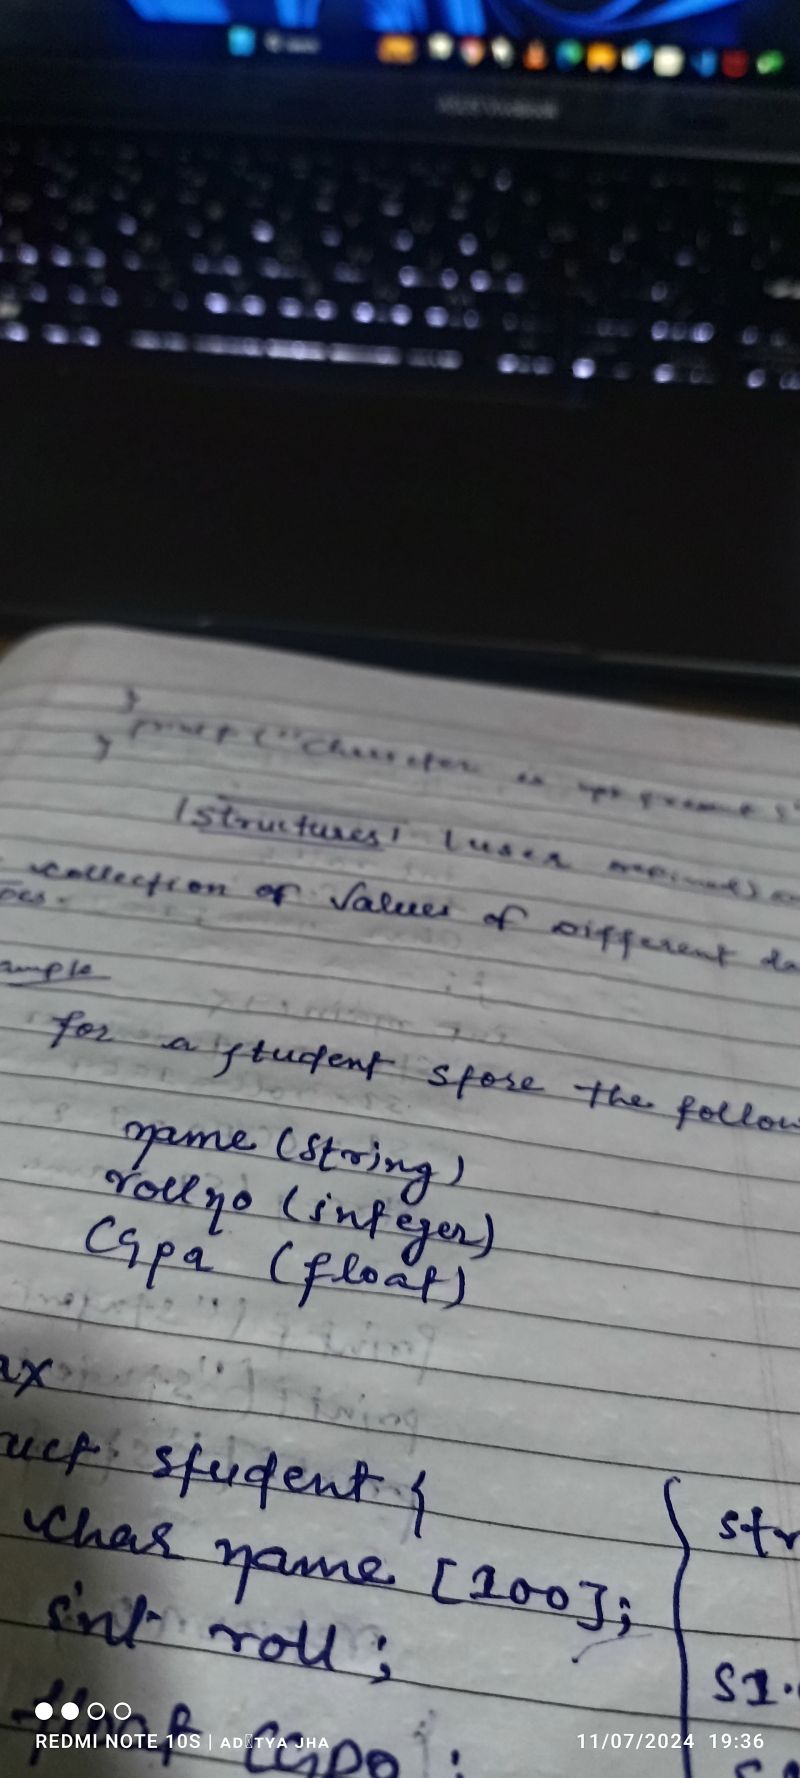 }
printf ("Character is not present
}
|Structures| (user
collection of values of Different da
oes.
ample
for a student store the follow
name (String)
rollno (integer)
Cgpa (float)
ax
uct student {
char name [100];
int roll;
float Cgpa ;
str
S1.
REDMI NOTE 10S | ADITYA JHA
11/07/2024 19:36